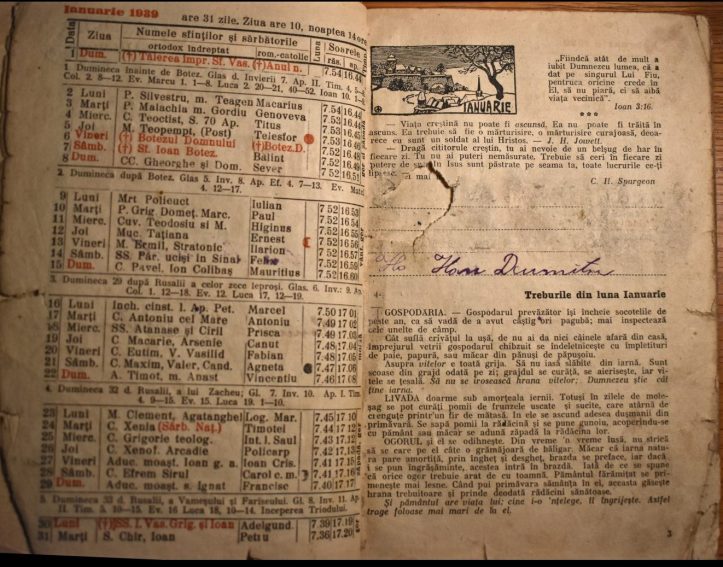 Ianuarie 1939 are 31 zile. Ziua are 10, noaptea 14 ore
Data Ziua Numele sfinților și sărbătorile Luna Soarele
ortodox îndreptat rom.-catolic răs. ap.
1 Dum. (†) Tăierea împr. Sf. Vas. (†) Anul n. 7.54 16.44
1 Dumineca înainte de Botez. Glas d. Învierii 7. Ap. II Tim. 4. 5—8.
Col. 2. 8—12. Ev. Marcu 1. 1—8. Luca 2. 20—21, 40—52. Ioan 10.
2 Luni P. Silvestru, m. Teagen Macarius 7.54
3 Marți P. Malachia m. Gordiu Genoveva 7.53
4 Mierc. C. Teoctist, S. 70 Ap. Titus 7.53
5 Joi M. Teopempt, (Post) Telesfor 7.53
6 Vineri (†) Botezul Domnului (†) Botez D. 7.53
7 Sâmb. (†) Sf. Ioan Botez. Lucian
8 Dum. CC. Gheorghe și Dom. Sever 7.52 16.51
2. Dumineca după Botez. Glas 5. Inv. 8. Ap. Ef. 4. 7—13. Ev. Matei
4. 12—17.
9 Luni Mrt Polieuct Iulian 7 52 16 53
10 Marți P. Grig. Domeț. Marc. Paul 7 52
11 Mierc. Cuv. Teodosiu si M. Higinus 7 52
12 Joi Muc. Tațiana Ernest 7 52
13 Vineri M. Ermil, Stratonic Ilarion 7 52
14 Sâmb. SS. Păr. uciși în Sinai Felix 7 52
15 Dum. C. Pavel. Ion Colibaș Mauritius 7 52 16 60
3. Dumineca 29 după Rusalii a celor zece leproși. Glas. 6. Inv.: 9. Ap.
Col. 1. 12—18. Ev. 12. Luca 17, 12—19.
16 Luni Inch. cinst. l. Ap. Pet. Marcel 7.50 17 01
17 Marți C. Antoniu cel Mare Antoniu 7.49 17 02
18 Mierc. SS. Atanase și Ciril Prisca 7.49 17 03
19 Joi C. Macarie, Arsenie Canut 7.48 17.04
20 Vineri C. Eutim, V. Vasilid Fabian 7.48 17.05
21 Sâmb. C. Maxim, Valer, Cand. Agneta 7.47 17.06
22 Dum. A. Timot, m. Anast Vincentiu 7.46 17.08
4. Dumineca 32 d. Rusalii, a lui Zacheu; Gl. 7. Inv. 10. Ap. I Tim.
4. 9—15. Ev. 15. Luca 19. 1—10.
23 Luni M. Clement, Agatanghel Log. Mar. 7.45 17.10
24 Marți C. Xenia (Sărb. Naț.) Timotei 7.44 17.12
25 Mierc. C. Grigorie teolog. Int. l. Saul 7.43 17.12
26 Joi C. Xenof. Arcadie Policarp 7.42 17.13
27 Vineri Aduc. moașt. Ioan g. a. Ioan Cris. 7.41 17.15
28 Sâmb. C. Efrem Sirul Carol c. m. 7.41 17.16
29 Dum. Aduc. moașt. s. Ignat Francisc 7.40 17.17
5. Dumineca 33 d. Rusalii, a Vameșului și Fariseului. Gl. 8. Inv. 11. Ap
II Tim. 5. 10—15. Ev. 16 Luca 18, 10—14. Inceperea Triodului.
30 Luni (†) SS. I. Vas. Grig. și Ioan Adelgund. 7.39 17.19
31 Marți S. Chir, Ioan Petru 7.36 17.20
„Fiindcă atât de mult a
iubit Dumnezeu lumea, că a
dat pe singurul Lui Fiu,
pentruca oricine crede în
El, să nu piară, ci să aibă
viața vecinică”.
Ioan 3:16.
IANUARIE
***
— Viața creștină nu poate fi ascunsă. Ea nu poate fi trăită în
ascuns. Ea trebuie să fie o mărturisire, o mărturisire curajoasă, deoa-
rece ea cum un soldat al lui Hristos. — J. H. Jowett.
— Dragă cititorule creștin, tu ai nevoie de un belșug de har în
fiecare zi. Tu nu ai puteri nemăsurate. Trebuie să ceri în fiecare zi
putere de Isus sunt păstrate pe seama ta, toate lucrurile ce-ți
mai
C. H. Spurgeon
Ho Han Dumitru
Treburile din luna Ianuarie
GOSPODARIA. — Gospodarul prevăzător își încheie socotelile de
peste an, ca să vadă de a avut câștig ori pagubă; mai inspectează
cele unelte de câmp.
Cât suflă crivățul la ușă, de nu ai da nici câinele afară din casă,
împrejurul vetrii gospodarul chibzuit se îndeletnicește cu împletituri
de paie, papură, sau măcar din pănuși de păpușoiu.
Asupra vitelor e toată grija. Să nu iasă slăbite din iarnă. Sunt
scoase din grajd odată pe zi; grajdul se curăță, se aierisește, iar vi-
tele se țesală. Să nu se irosească hrana vitelor; Dumnezeu știe cât
ține iarna.
LIVADA doarme sub amorțeala iernii. Totuși în zilele de mole-
șag se pot curăți pomii de frunzele uscate și sucite, care atârnă de
crenguțe printr'un fir de mătasă. In ele se ascund adesea dușmanii din
primăvară. Se sapă pomii la rădăcină și se pune gunoiu, acoperindu-se
cu pământ sau măcar se adună zăpadă la rădăcina lor.
OGORUL și el se odihnește. Din vreme 'n vreme însă, nu strică
să se care pe el câte o grămăjoară de băligar. Măcar că iarna natu-
ra pare amorțită, prin îngheț și dengheț, brazda se preface, iar dacă
s'e pun îngrășăminte, acestea intră în brazdă. Iată de ce se spune
că orice ogor trebuie arat de cu toamnă. Pământul fărâmițat se pri-
menește mai lesne. Când pui primăvara sămânța în el, aceasta găsește
hrana trebuitoare și prinde deodată rădăcini sănătoase.
Și pământul are viața lui; cine i-o 'nțelege, îl îngrijește. Astfel
trage foloase mai mari de la el.
3